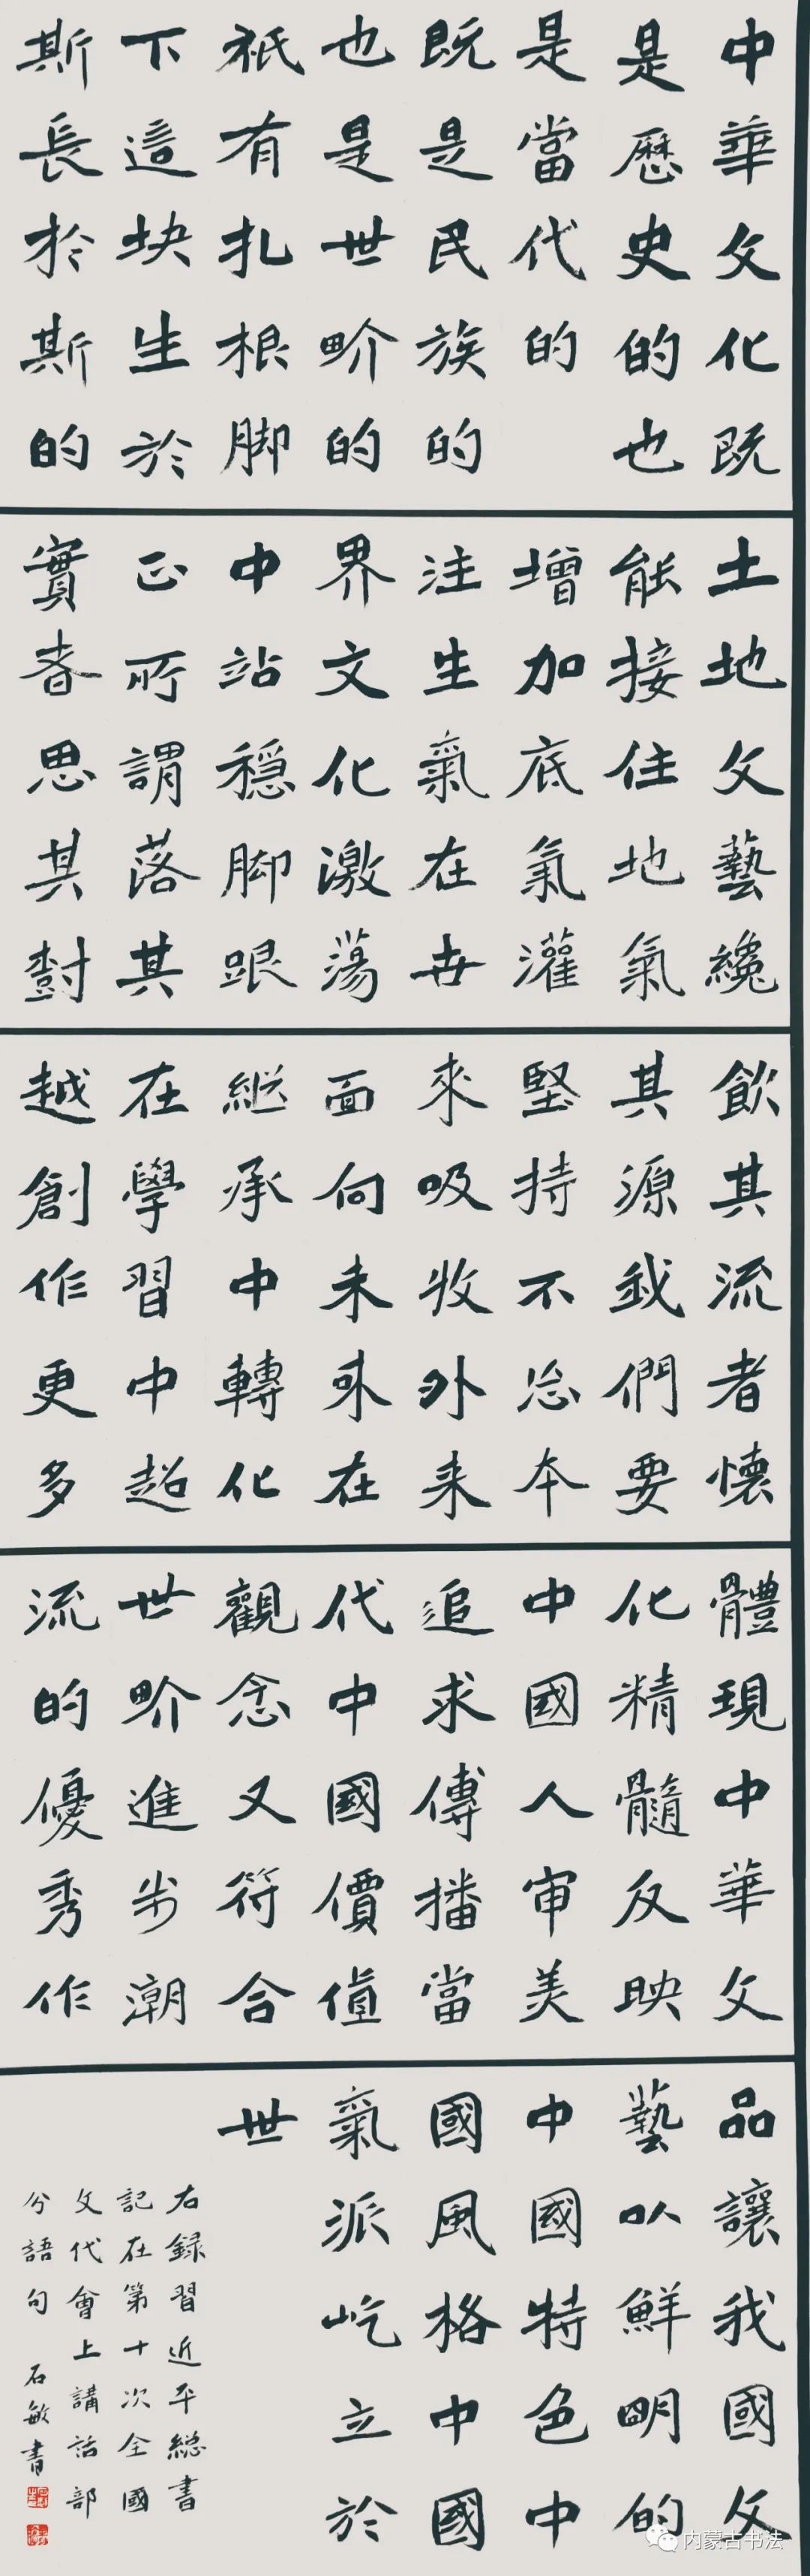 中華文化既
是歷史的也
是當代的
既是民族的
也是世畍的
衹有扎根脚
下這块生於
斯長於斯的
土地文藝纔
能接住地氣
增加底氣灌
注生氣在世
界文化激蕩
中站穩脚跟
正所謂落其
實者思其樹
飲其流者懐
其源我們要
堅持不忘本
來吸收外来
面向未來在
継承中轉化
在學習中超
越創作更多
體現中華文
化精髓反映
中國人审美
追求傳播當
代中國價值
觀念又符合
世畍進步潮
流的優秀作
品讓我國文
藝以鮮明的
中國特色中
國風格中國
氣派屹立於
世
右録習近平総書
記在第十次全國
文代會上講話部
分語句 石敏書
内蒙古书法